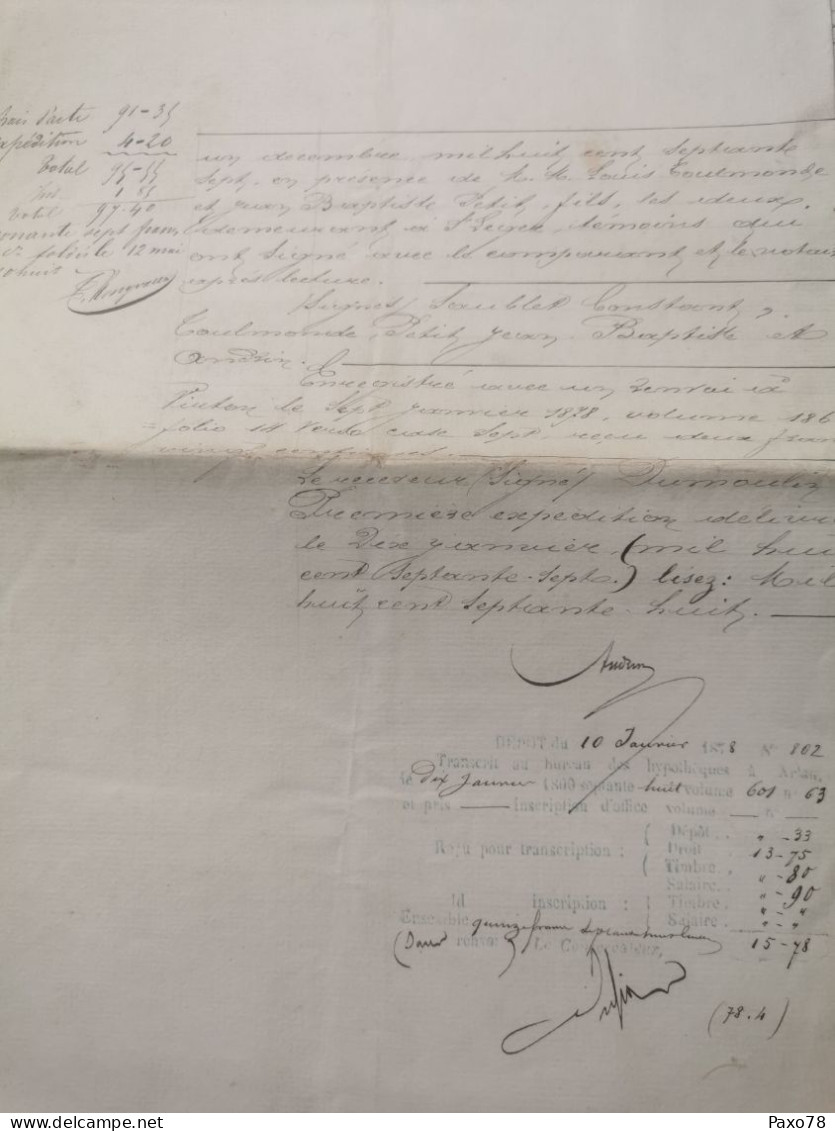 frais d'acte 91-35
expédition 4-20
Total 95-55
1 85
Total 97-40
nonante sept fran
folio le 12 mai
un décembre mil huit cent septante
sept, en présence de M. M. Louis Toulmonde
et Jean Baptiste Petit, fils, les deux
demeurant à St Leger, témoins qui
ont signé avec le comparant et le notaire
après lecture.
Signés, Saublet Constant,
Toulmonde, Petit Jean Baptiste et
Enregistré avec un renvoi à
Virton le sept janvier 1878, volume 186
folio 14 verso case sept, reçu deux fran
vingt centimes.
Le receveur (Signé) Dumoulin
Première expédition délivr
le Dix janvier (mil hui
cent septante-sept.) lisez: Mil
huit cent septante-huit.
DÉPOT du 10 Janvier 1878 N° 802
Transcrit au bureau des hypothèques à Arlon,
le dix Janvier 1800 septante huit volume 601 n° 63
et pris — Inscription d'office volume — n° —
Dépôt. " -33
Reçu pour transcription : Droit 13-75
Timbre. " -80
Salaire. " -90
Id inscription : Timbre. " - "
Salaire. " - "
Ensemble quinze francs septante huit 15-78
(Dans renvoi) Le Conservateur,
(78.4)
Paxo78